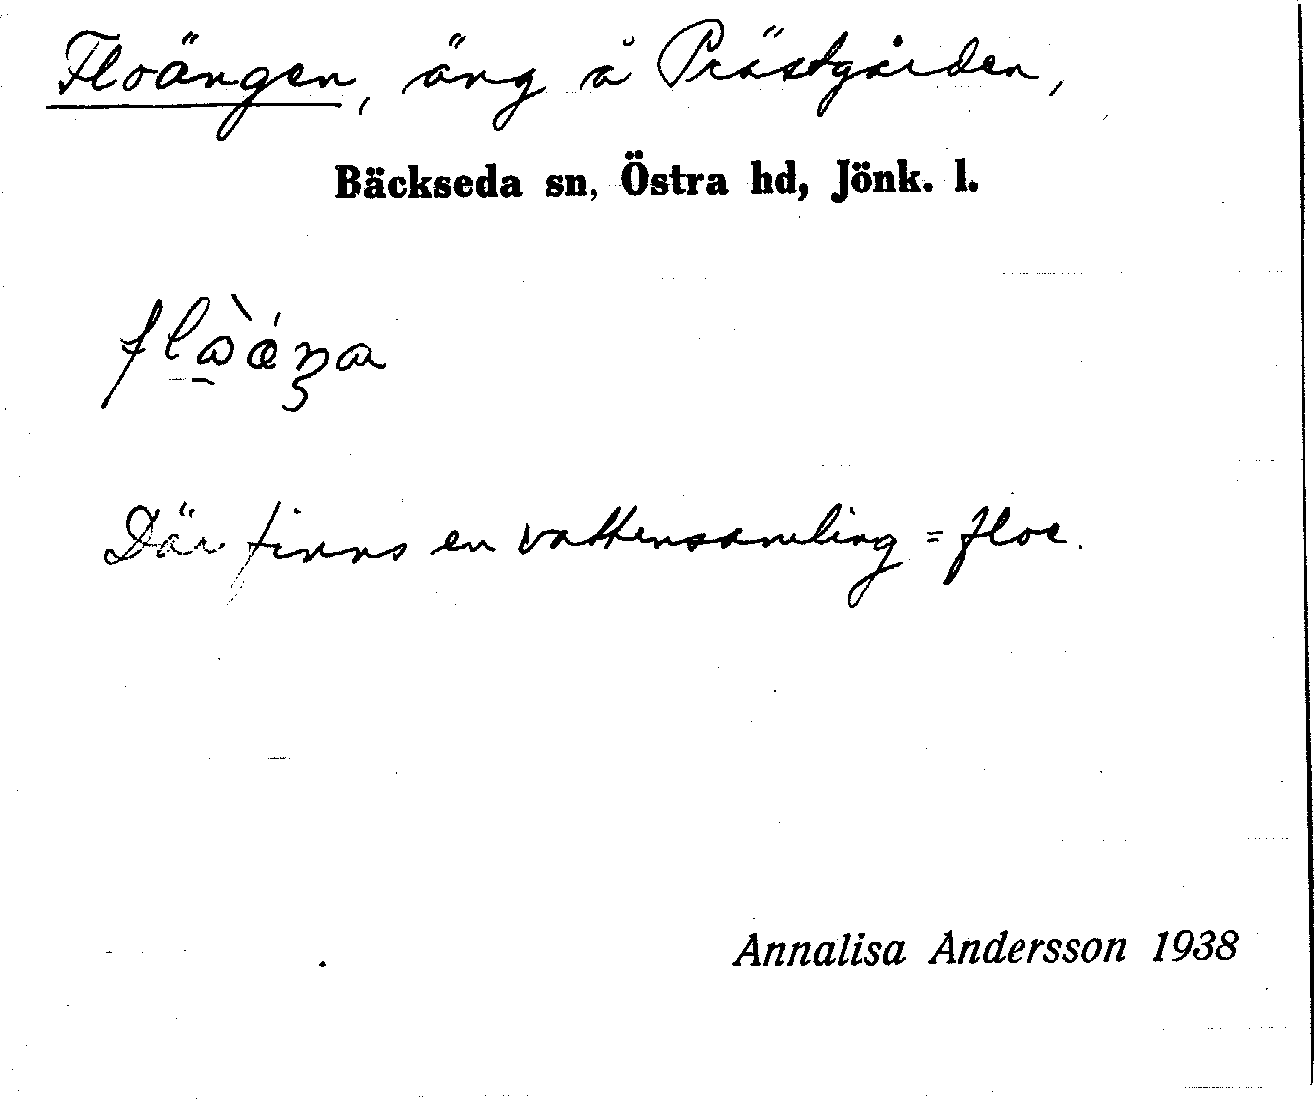 Floängen, äng å Prästgården,
Bäckseda sn, Östra hd, Jönk. l.
Där finns en vattensamling = floe.
Annalisa Andersson 1938